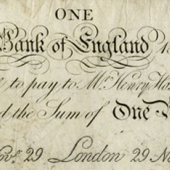 ONE
Bank of England
to pay to Mr. Henry Ha
the Sum of One
Nov. 29 London 29 No